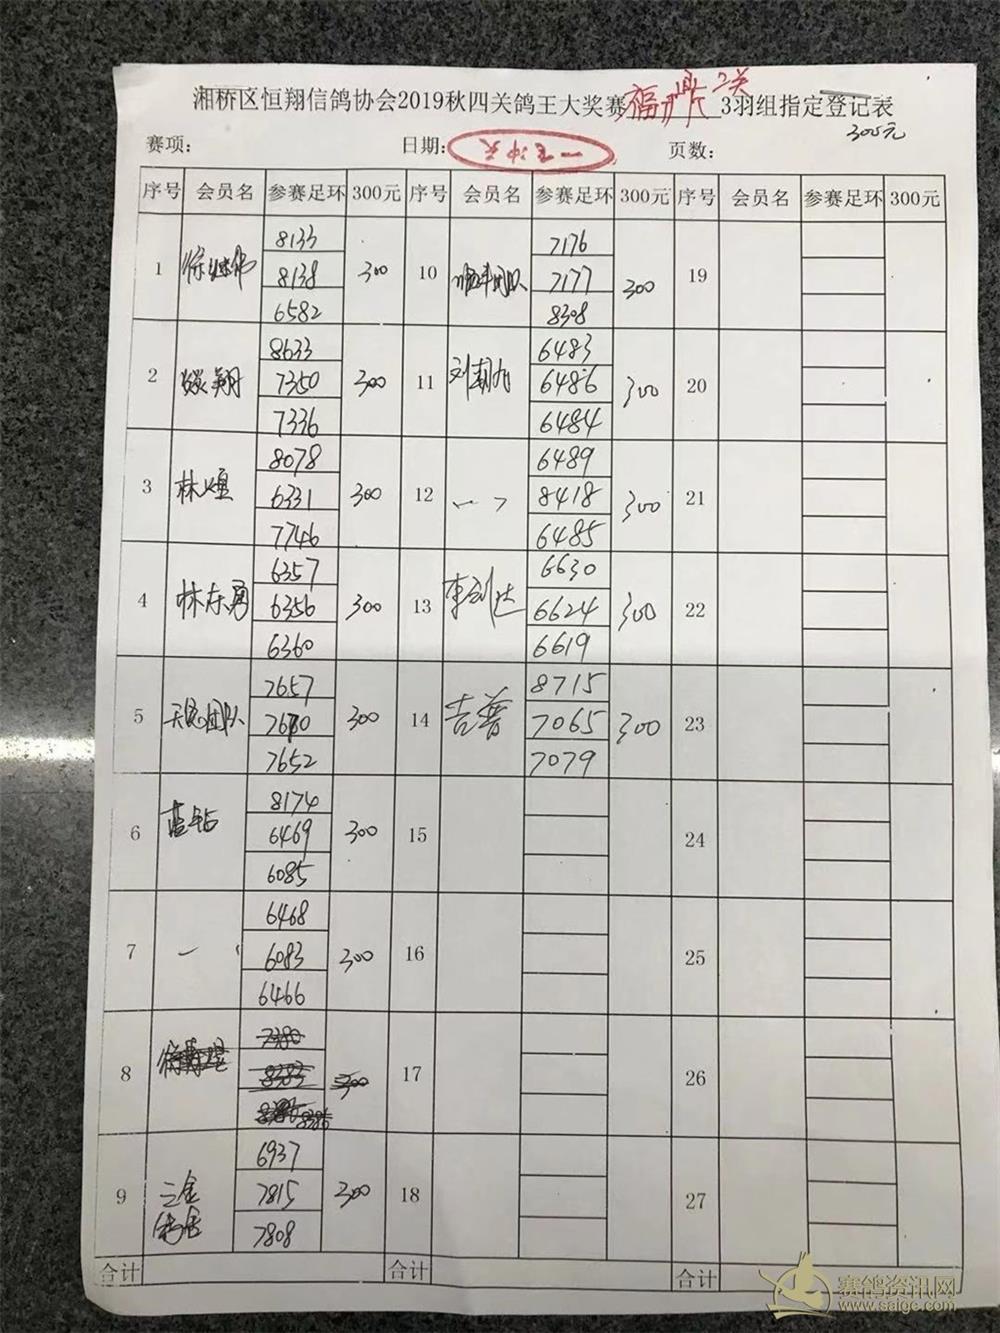 湘桥区恒翔信鸽协会2019秋四关鸽王大奖赛福鼎二关3羽组指定登记表
300元
赛项: 日期: 页数:
序号 会员名 参赛足环 300元 序号 会员名 参赛足环 300元 序号 会员名 参赛足环 300元
1 8133 8138 6582 300
2 翔 8633 7350 7336 300
3 林煌 8078 6331 7746 300
4 林东勇 6357 6356 6360 300
5 团队 7657 7680 7652 300
6 蓝钻 8174 6469 6085 300
7 6468 6083 6466 300
8 7380 8383 8386 300
9 三金鸽舍 6937 7815 7808 300
10 团队 7176 7177 8308 300
11 刘朝 6483 6486 6484 300
12 6489 8418 6485 300
13 李 达 6630 6624 6619 300
14 吉普 8715 7065 7079 300
15
16
17
18
19
20
21
22
23
24
25
26
27
合计 合计 合计
赛鸽资讯网
www.saige.com